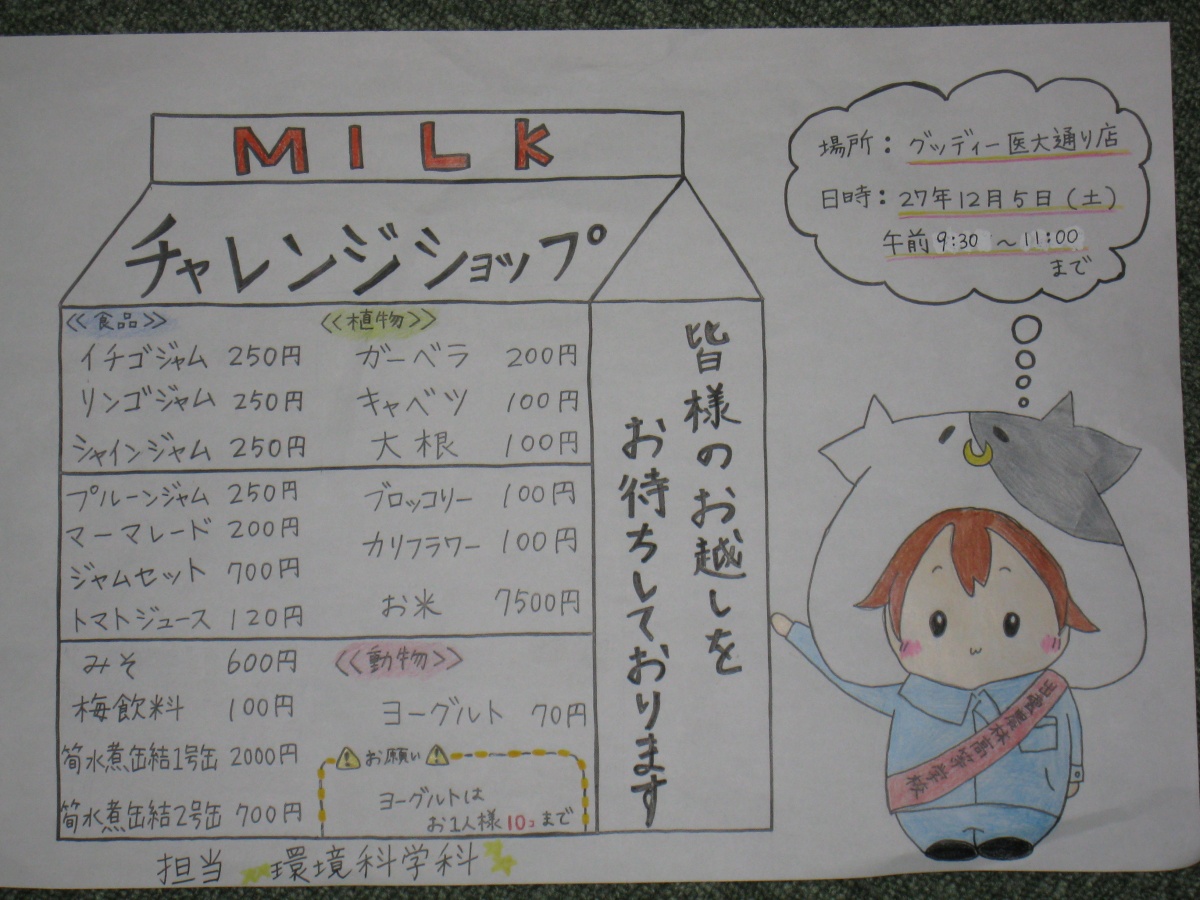 MILK
チャレンジショップ
≪食品≫
イチゴジャム 250円
リンゴジャム 250円
シャインジャム 250円
プルーンジャム 250円
マーマレード 200円
ジャムセット 700円
トマトジュース 120円
みそ 600円
梅飲料 100円
筍水煮缶結1号缶 2000円
筍水煮缶結2号缶 700円
≪植物≫
ガーベラ 200円
キャベツ 100円
大根 100円
ブロッコリー 100円
カリフラワー 100円
お米 7500円
≪動物≫
ヨーグルト 70円
お願い
ヨーグルトは
お1人様10コまで
皆様のお越しを
お待ちしております
場所：グッディー医大通り店
日時：27年12月5日（土）
午前9:30～11:00
まで
出雲農林高等学校
担当 環境科学科